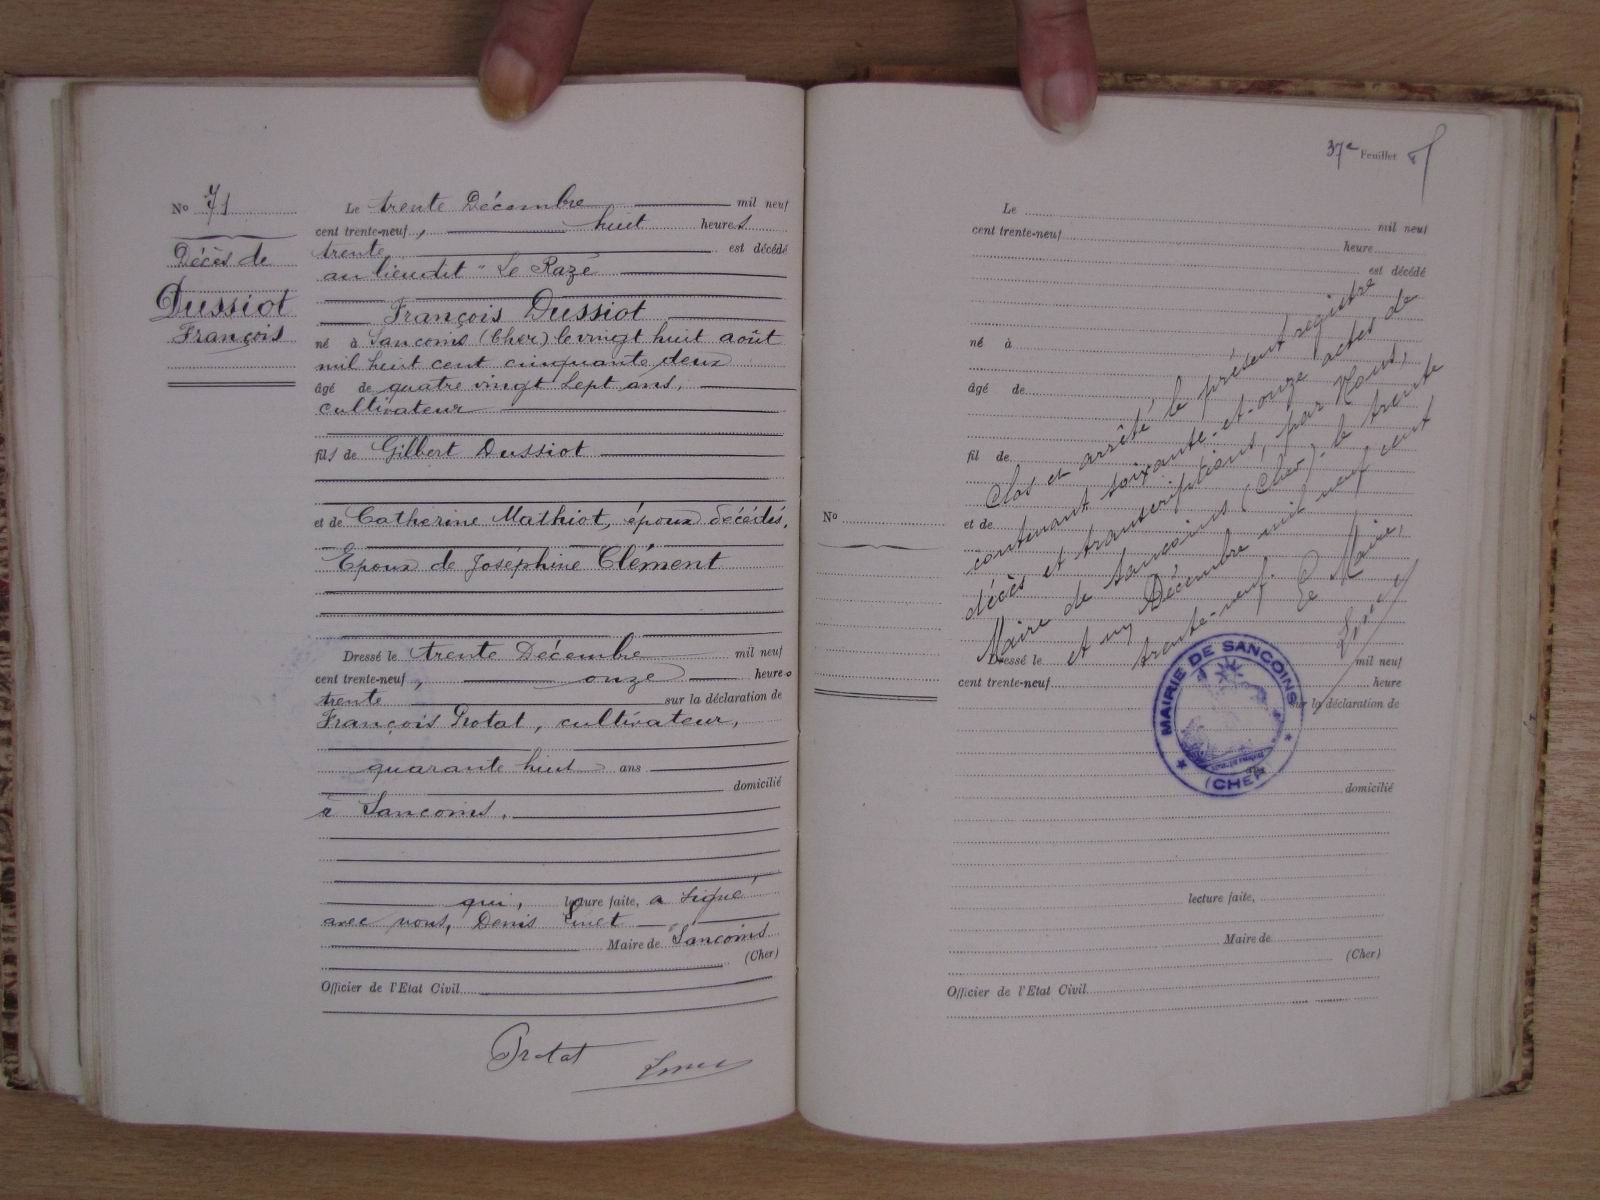 No 71
Décès de
Dussiot
François
Le trente Décembre mil neuf
cent trente-neuf, huit heures
trente est décédé
au lieudit "Le Razé
François Dussiot
né à Sancoins (Cher) le vingt huit août
mil huit cent cinquante deux
âgé de quatre vingt sept ans,
cultivateur
fils de Gilbert Dussiot
et de Catherine Mathiot, époux décédés.
Epoux de Joséphine Clément
Dressé le trente Décembre mil neuf
cent trente-neuf, onze heures
trente sur la déclaration de
François Protat, cultivateur,
quarante huit ans
domicilié
à Sancoins.
qui, lecture faite, a signé
avec nous, Denis
Maire de Sancoins
(Cher)
Officier de l'Etat Civil
Protat
37e Feuillet
Le mil neuf
cent trente-neuf heure
est décédé
né à
âgé de
fil de
et de
No
Clos et arrêté le présent registre
contenant soixante-et-onze actes de
décès et transcriptions, par Nous,
Maire de Sancoins (Cher) le trente
et un Décembre mil neuf cent
trente-neuf. Le Maire,
Dressé le mil neuf
cent trente-neuf heure
sur la déclaration de
MAIRIE DE SANCOINS
(CHER)
domicilié
lecture faite,
Maire de
(Cher)
Officier de l'Etat Civil